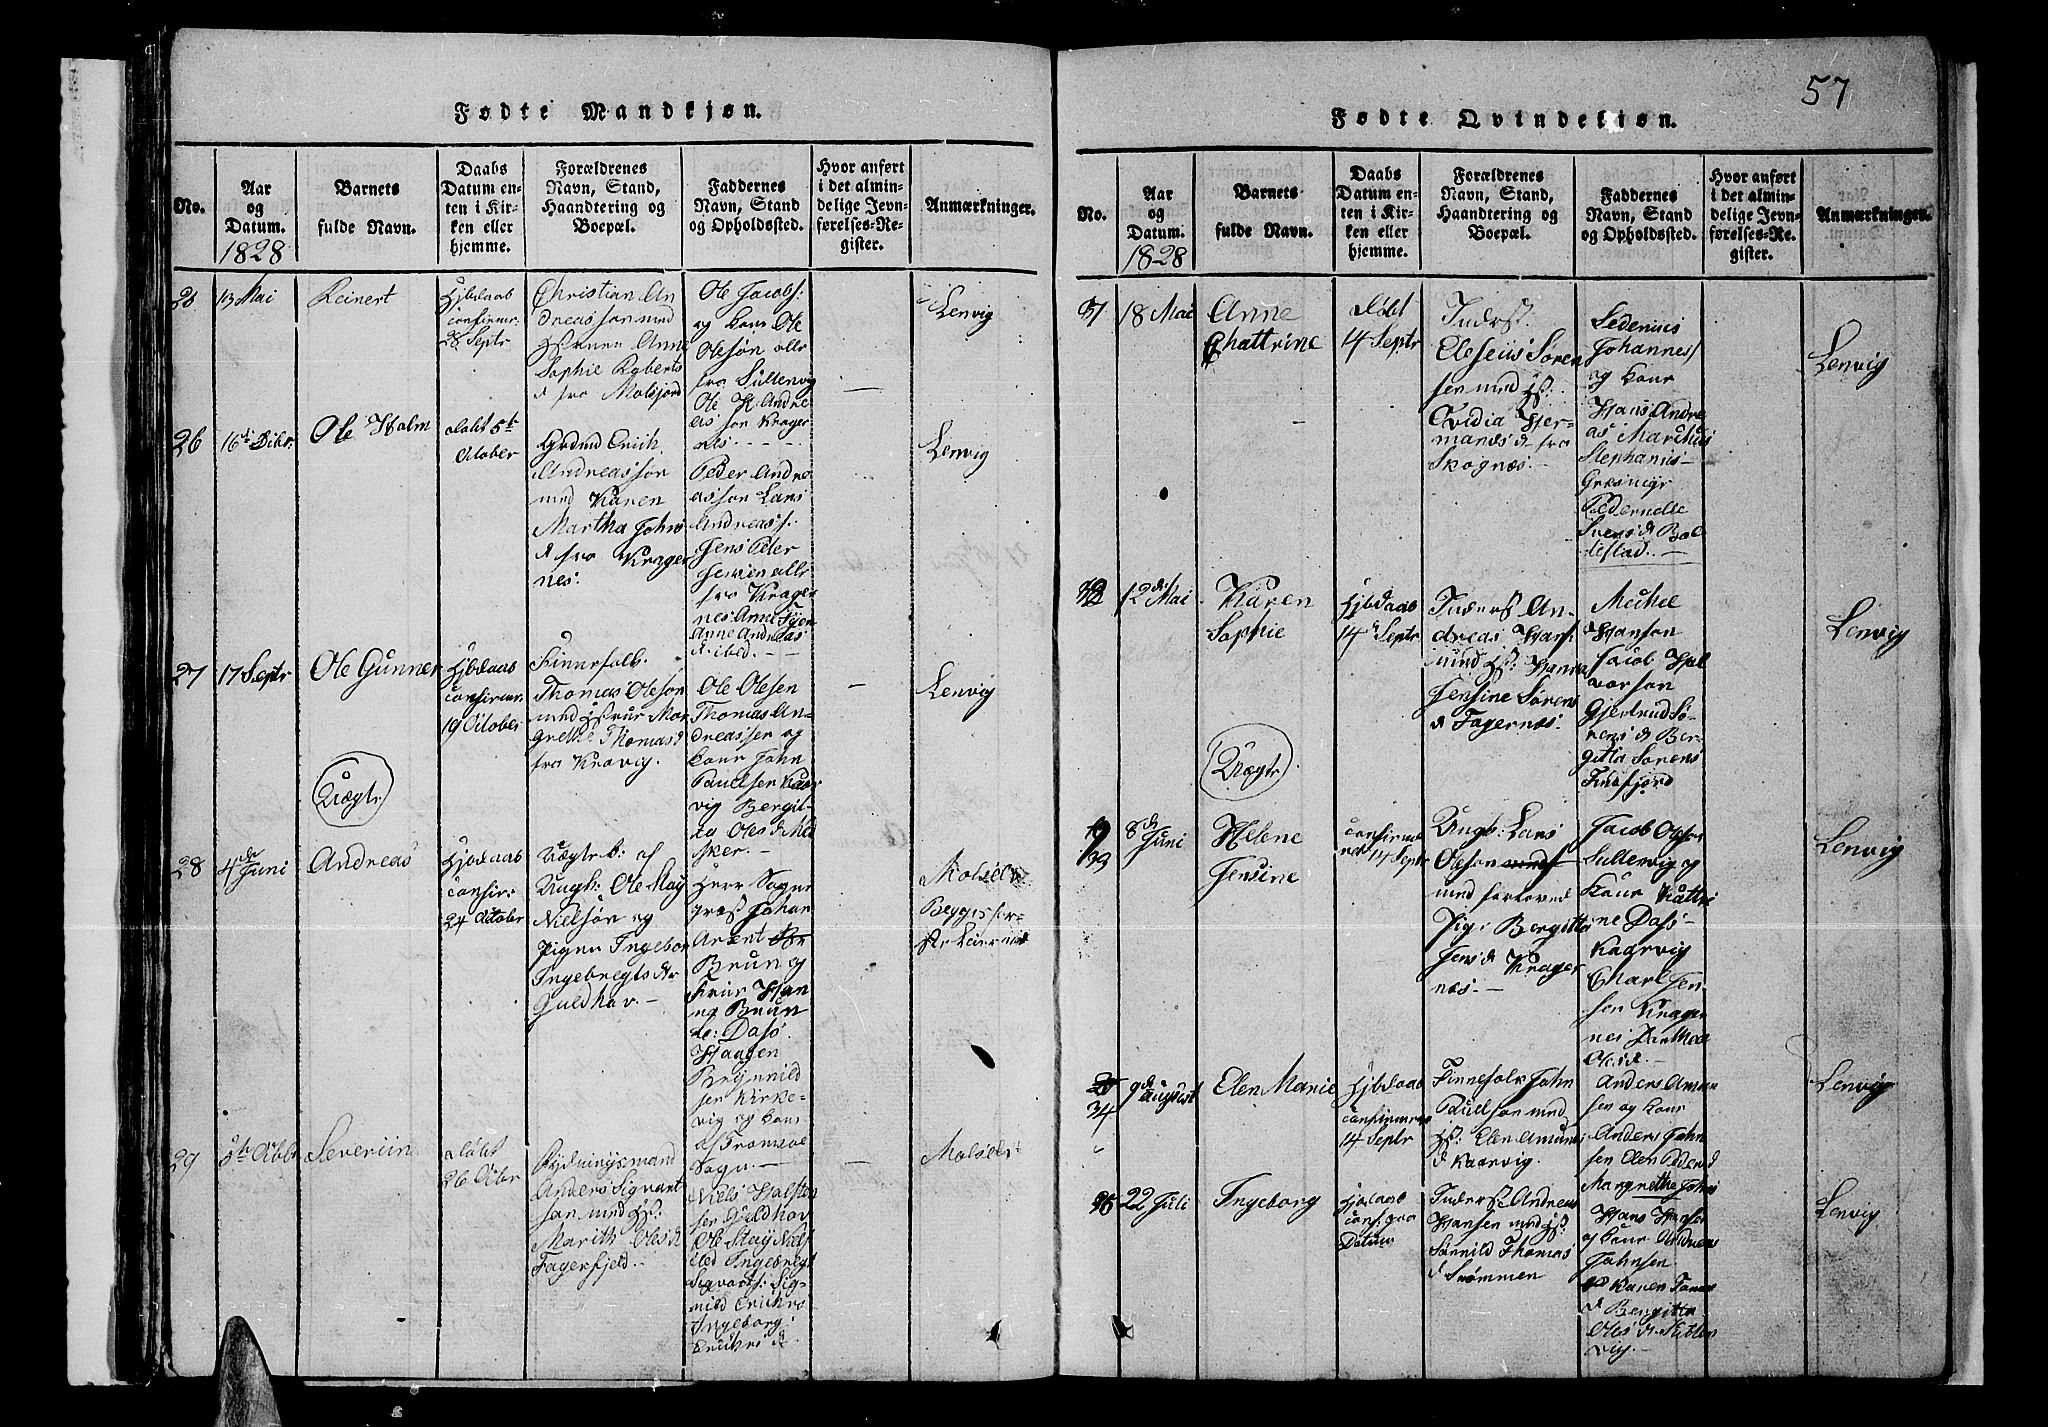 57
Fødte Mandkjøn.
No.
Aar
og
Datum.
1828
Barnets
fulde Navn.
Daabs
Datum en-
ten i Kir-
ken eller
hjemme.
Forældrenes
Navn, Stand,
Haandtering og
Boepæl.
Faddernes
Navn, Stand
og Opholdssted.
Hvor anført
i det almin-
delige Jevn-
førelses-Re-
gister.
Anmærkninger.
13 Mai
Reinert
Hjbdaab
confirmr:
28 Septr
Christian An
dreassøn med
Hstruen Anne
Sophie Roberts
d fra Malsjord
Ole Jacobs:
og kone Ole
Olesøn alle
fra Sultenvig
Ole H. Andre
as søn Krager
nes.
Lenvig
26
Ole Holm
døbt 5te
October
Grdmd Erich
Andreassøn
med Karen
Martha Johns
d fra Krager
nes.
Peder Andre
assøn Lars
Andreass.
Jens Peter
Jensen alle
fra Krager
nes. Anne
Anne Andreas
d. ibed.
Lenvig
27
17 Septr
Ole Gunner
Hjbdaab
confirmr.
19 October
Finnefolk.
Thomas Olesøn
med Hstrue Mar
grethe Thomasd
fra Kravig.
Ole Olesen
Thomas An-
dreassen og
kone John
Paulsen Kaar
vig Bergit-
ta Olesd
Lenvig
28
4de Juni
Andreas
Hjbdaab
confir:
24 October
af
Ungk: Ole May
Nielsøn og
Pigen Ingebor
Ingebregtsdtr
Guldhav.
Herr Sogne
prest Johan
Arent
Brun og
Frue Han
na Brun
Haagen
Brynnild
sen Kirke-
vig og kone
af Tromsøe
Sogn.
Malselv
Begges før-
ste Leiermaal
29
Severiin
døbt
26 Octbr
Rydningsmand
Anders Sigvart
søn med Hst:
Marith Olesd
Fagerfjeld.
Niels Halsten
sen Guldhav
Ole May Niels
Ingebregt
Sigvarts: Sig-
nild Erichs
Ingeborg
Erichsd
Malselv
Fødte Qvindekiøn.
No.
Aar
og
Datum.
1828
Barnets
fulde Navn.
Daabs
Datum en-
ten i Kir-
ken eller
hjemme.
Forældrenes
Navn, Stand,
Haandtering og
Boepæl.
Faddernes
Navn, Stand
og Opholdssted.
Hvor anført
i det almin-
delige Jevn-
førelses-Re-
gister.
Anmærkninger.
31
18 Mai
Anne
Chattrine
Døbt
14 Septr
Inderst.
Eleseus Søren
sen med Hst:
Ovidia Hjer-
mansd fra
Skognæs.
Sedenius
Johannes
og kone
Hans Andre
as, Marchus
Stephanus
Græsmyr
Pedernelle
Svensd Bal
testad.
Lenvig
12de Mai
Karen
Sophie
Hjbdaab
14d Septr
Inderst An-
dreas Hans:
med Hst: Hanna
Jensine Sørens
d Fagernæs.
Michel
Hansøn
Jacob Hal
vorsøn
Gjertrud Sø-
rensd Ber-
gitta Sørens
Finfjord
Lenvig
33
8d
Juni
Helene
Jensine
confirme
ret 14 Septr
Ungk: Lars
Olesøn
med forlovede
Pige Bergitta
Jensd Krager
næs.
Jacob Olesøn
Sultenvig og
kone Kattri
ne Dass
Kaarvig
Charl Jen-
sen Krager
nes Dorthea
Olesd.
Lenvig
34
9d
August
Elen Marie
Hjbdaab
confirmeres
14 Septr
Finnefolk John
Paulsøn med
Hst: Elen Amun
d Kaarvig.
Anders Amun
sen og kone
Anders John
sen Elen Pedersd
Margrethe Johns
Lenvig
22 Juli
Ingeborg
Hjdaab
conf: qvo
Datum
Inderst Andreas
Hansen med Hst:
Sørnild Thomas
d Strømmen
Hans Hansen
og kone Andreas
Johnsen
Karen Jonas
d Bergitta
Olesd Sulten
vig.
Lenvig